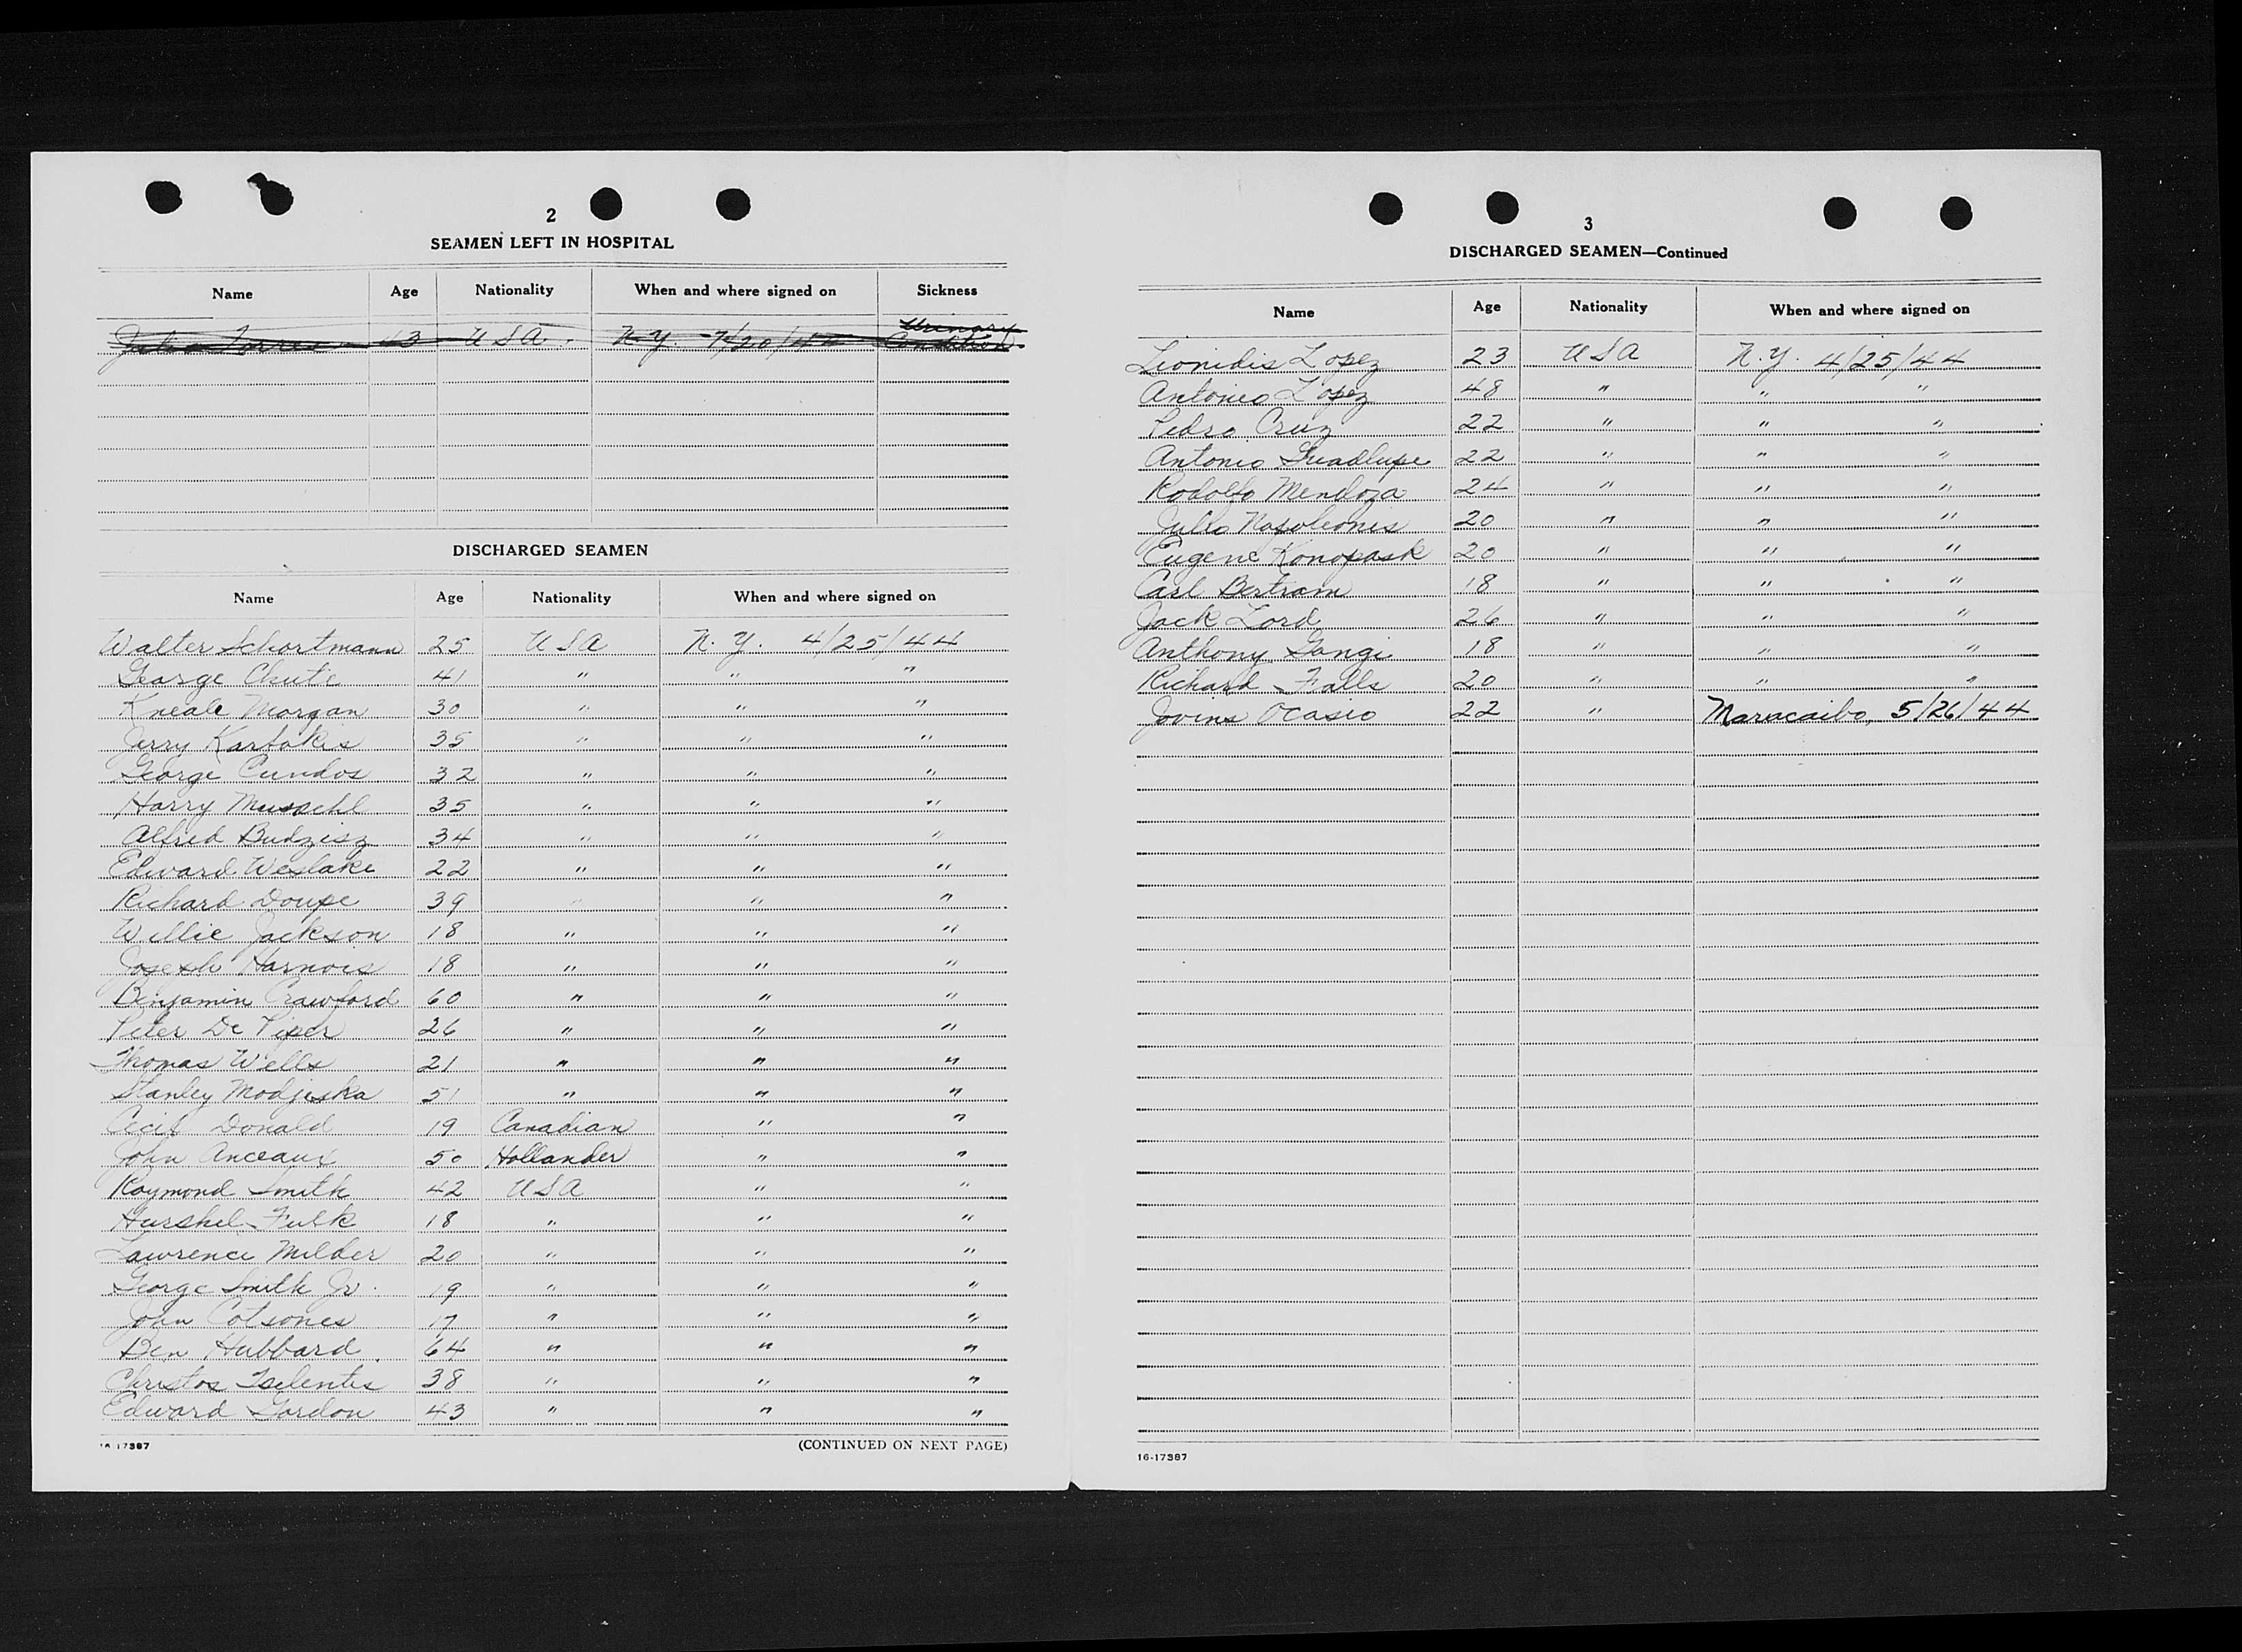 2
SEAMEN LEFT IN HOSPITAL
Name Age Nationality When and where signed on Sickness
Urinary
Torres 63 USA. N.Y. Condition
DISCHARGED SEAMEN
Name Age Nationality When and where signed on
Walter Schortmann 25 USA N.Y. 4/25/44
George Chute 41 " " "
Kneale Morgan 30 " " "
Jerry Karfakis 35 " " "
George Cundos 32 " " "
Harry 35 " " "
Alfred Budzisz 34 " " "
Edward Weslake 22 " " "
Richard Doupe 39 " " "
Willie Jackson 18 " " "
Joseph Harnois 18 " " "
Benjamin Crawford 60 " " "
Peter De Piper 26 " " "
Thomas Wells 21 " " "
Stanley Modjeska 51 " " "
Cecil Donald 19 Canadian " "
John Anceaux 50 Hollander " "
Raymond Smith 42 USA " "
Hurshel Fulk 18 " " "
Lawrence Milder 20 " " "
George Smith Jr. 19 " " "
John Cotsones 17 " " "
Ben Hubbard. 64 " " "
Christos Tselentis 38 " " "
Edward Gordon 43 " " "
16-17387 (CONTINUED ON NEXT PAGE)
3
DISCHARGED SEAMEN—Continued
Name Age Nationality When and where signed on
Leonidis Lopez 23 USA N.Y. 4/25/44
Antonio Lopez 48 " " "
Pedro Cruz 22 " " "
Antonio Guadlupe 22 " " "
Rodolfo Mendoza 24 " " "
Julio Napoleonis 20 " " "
Eugene Konopask 20 " " "
Carl Bertram 18 " " "
Jack Lord 26 " " "
Anthony Gangi 18 " " "
Richard Falls 20 " " "
Jovino Ocasio 22 " Maracaibo, 5/26/44
16-17387